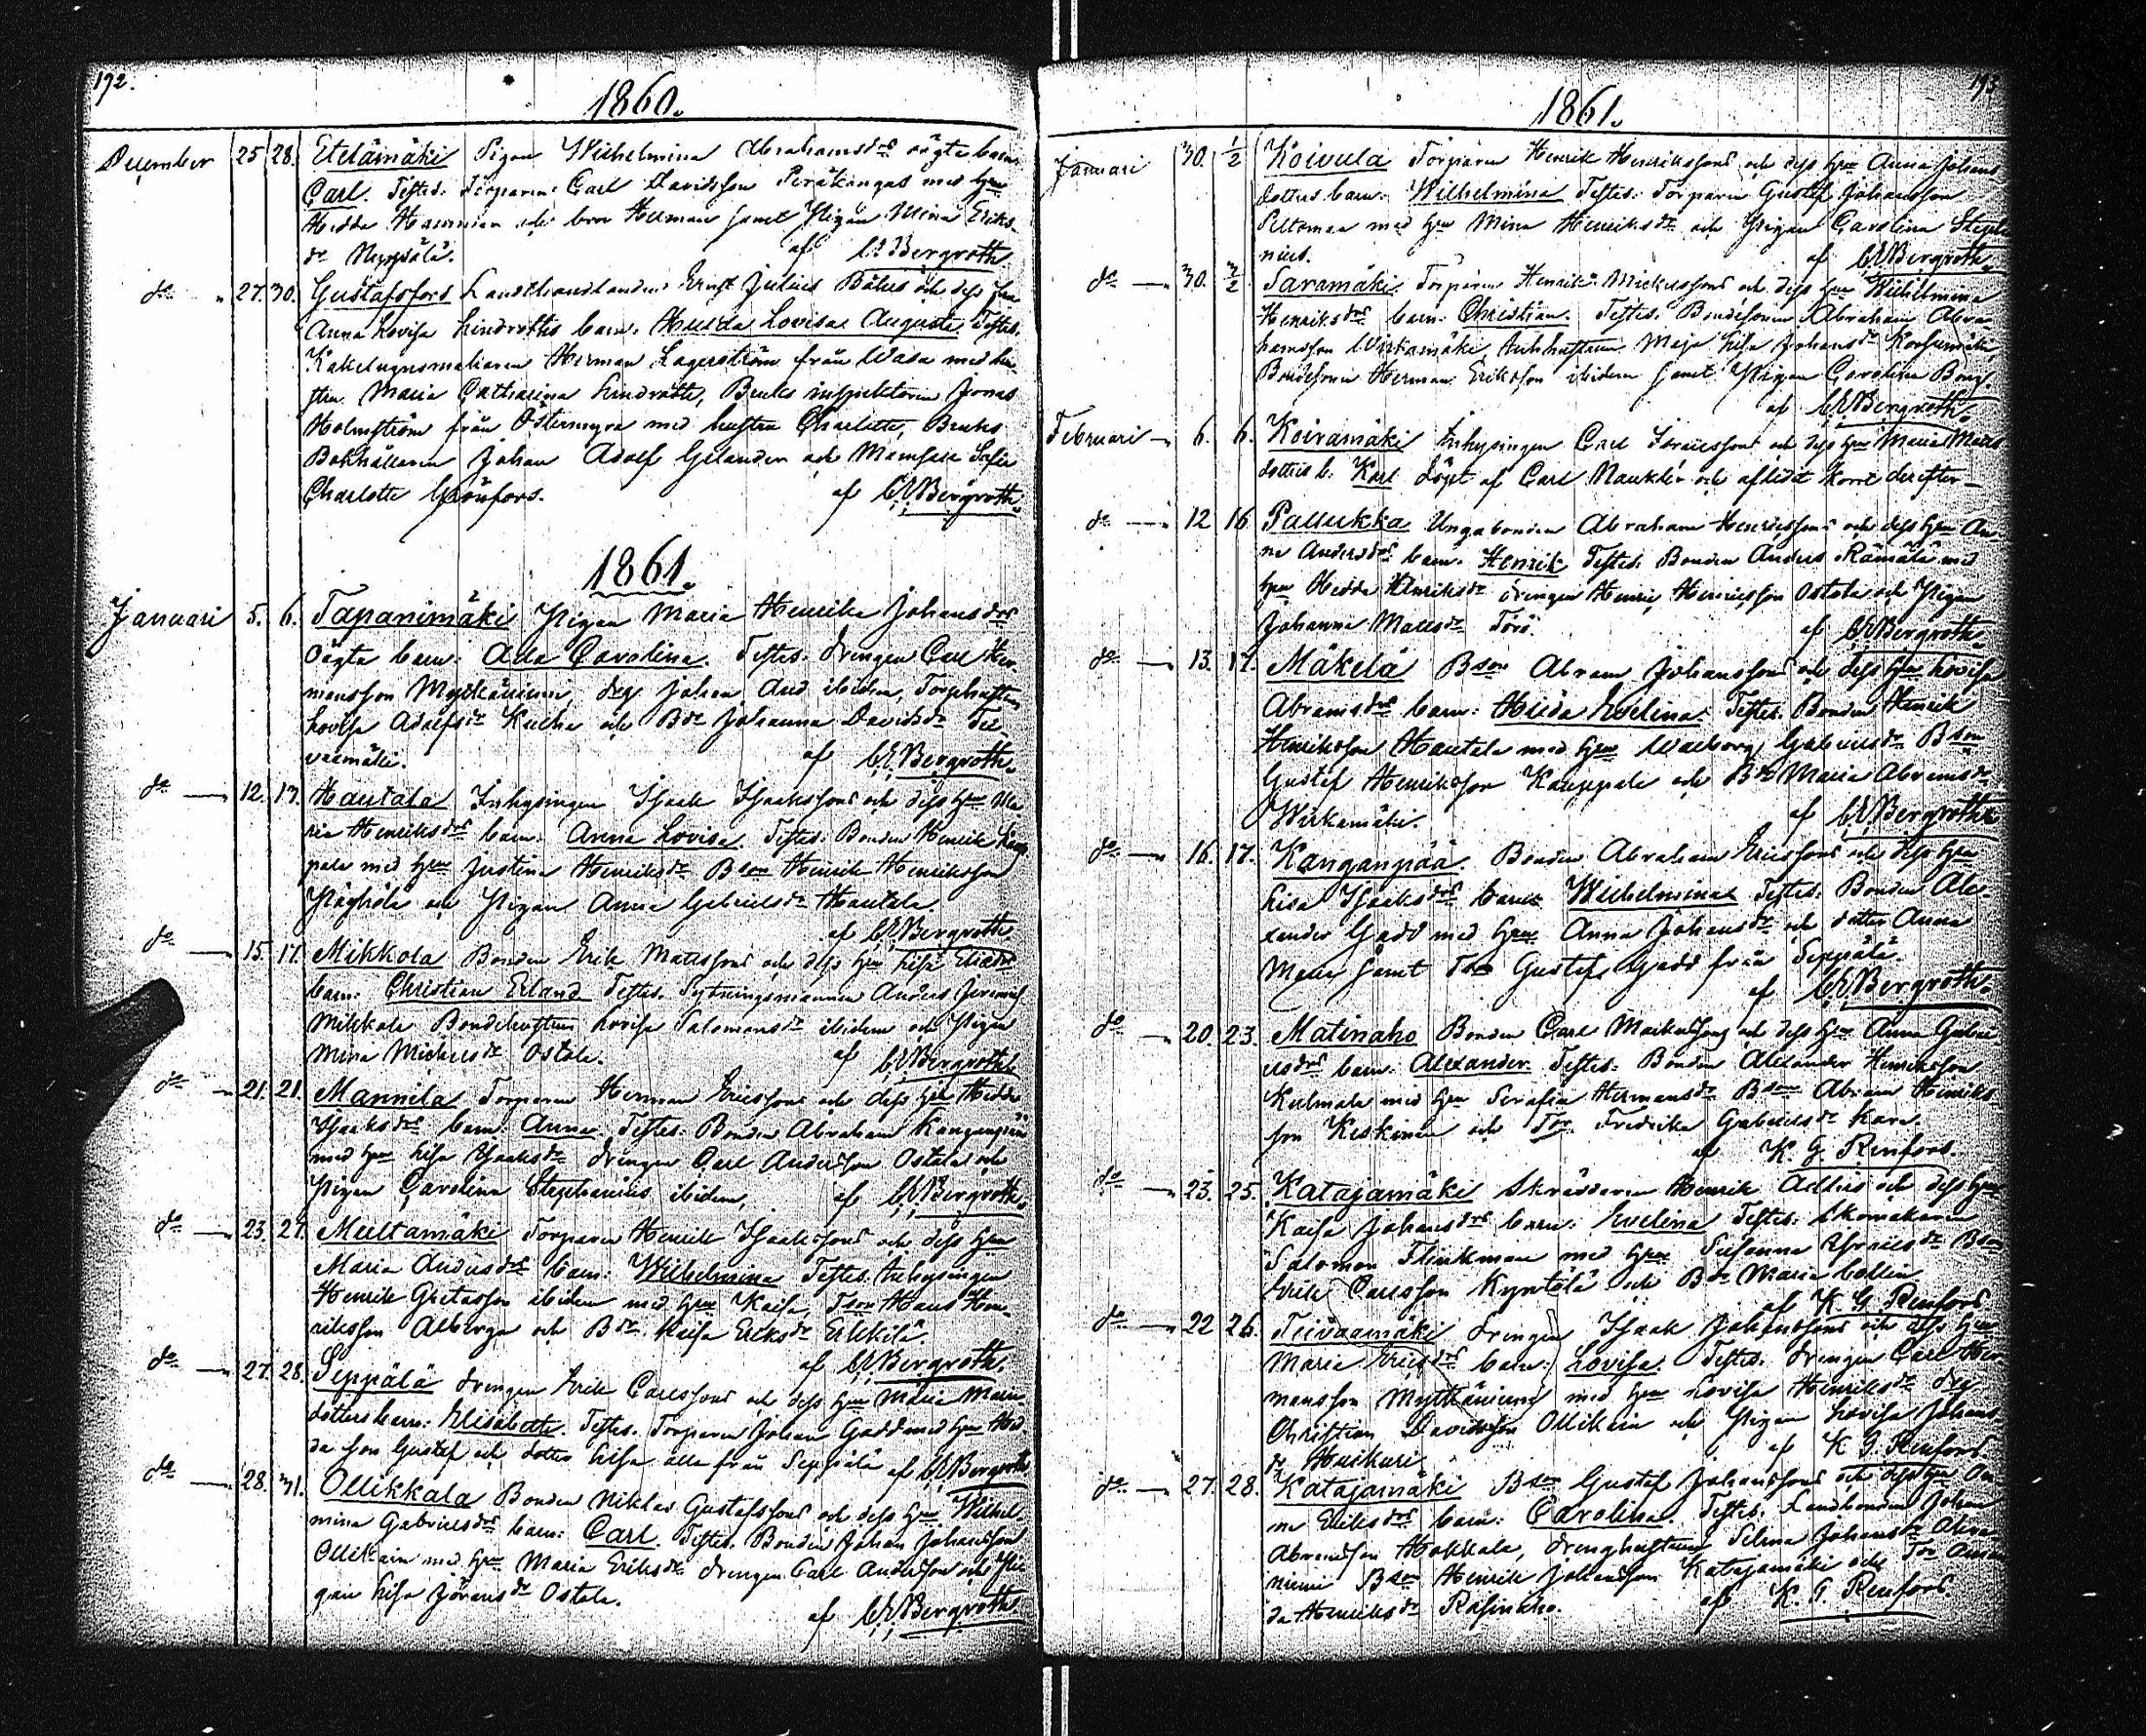 192.
1860.
December 25 28. Etelämäki Pigan Wilhelmina Abrahamsdrs oägta barn:
Carl. Testes: Torparen Carl Davidsson Peräkangas med hru
Hedda och bror Herman samt Pigan Mina Eriks-
dr af CE Bergroth.
do 27. 30. Gustafsfors Landthandlanden Ernst Julius och dess fru
Anna Lovisa Lindroths barn. Hulda Lovisa Augusta. Testes.
Kakelugnsmakaren Herman Lagerström från Wasa med hu-
stru Maria Catharina Lindroth, Bruks inspektoren Jonas
Holmström från Östermyra med hustru Charlotte, Bruks
Bokhållaren Johan Adolf Gelander och Mamsell Sofie
Charlotte Grönfors. af CE Bergroth.
1861.
Januari 5. 6. Tapanimäki Pigan Maria Henrika Johansdrs
oägta barn: Ada Carolina. Testes. drengen Carl Her-
mansson Myllyniemi, drg Johan ibidem, Torphustrun
Lovisa Adolfsdr och Bdr Johanna Davidsdr
af CE Bergroth.
do 12. 13. Hautala Inhysingen Isaak Isaakssons och dess hru Ma-
ria Henriksdrs barn: Anna Lovisa. Testes: Bonden Henrik
pala med hru Justina Henriksdr Bson Henrik Henriksson
och Pigan Anna Gabrielsdr Hautala.
af CE Bergroth.
do 15. 17. Mikkola Bonden Erik Matssons och dess hru Lisa Eliædrs
barn: Christian Erland Testes. Sytningsmannen Anders Jeremias
Mikkola Bondehustrun Lovisa Salomonsdr ibidem och Pigan
Mina Michelsdr Ostola. af CE Bergroth.
do 21. 21. Mannila Torparen Herman Ericssons och dess hru Hedda
Isaaksdrs barn: Anna. Testes: Bonden Abraham Kanganpää
med hru Lisa Isaaksdr drengen Carl Andersson Ostola och
Pigan Carolina Stephanius ibidem, af CE Bergroth.
do 23. 27. Multamäki Torparen Henrik Isaakssons och dess hru
Maria Andersdrs barn: Wilhelmina Testes. Inhysingen
Henrik ibidem med hru Kaisa, Tson Hans Hen-
riksson Alberga och Bdr Kaisa Eriksdr Erkkilä.
af CE Bergroth.
do 27. 28. Seppälä drengen Erik Carlssons och dess hru Maria
dotters barn: Elisabeth. Testes. Torparen Johan Gadd med hru Hed-
da son Gustaf och dotter Lisa alla från Seppälä af CE Bergroth
do 28. 31. Ollikkala Bonden Niklas Gustafssons och dess hru Wilhel-
mina Gabrielsdrs barn: Carl. Testes. Bonden Johan Johansson
Ollikain med hru Maria Eriksdr drengen Carl Andersson och Pi-
gan Lisa Göransdr Ostola.
af CE Bergroth.
193
1861.
Januari 30. 1/2 Koivula Torparen Henrik Henrikssons och dess hru Anna Johans
dotters barn: Wilhelmina Testes: Torparen Gustaf Johansson
Peltomaa med hru Mina Henriksdr och Pigan Carolina Stepha
nius. af CE Bergroth.
do 30. 3/2 Saramäki Torparen Henrik Mickelssons och dess hru Wilhelmina
Henriksdrs barn: Christian. Testes. Bondesonen Abraham Abra-
hamsson Wirkamäki, Inhhustrun Maja Lisa Johansdr
Bondesonen Herman Eriksson ibidem samt Pigan Carolina Borg.
af CE Bergroth.
Februari 6. 6. Koiramäki Inhysingen Carl och dess hru Maria Mats
dotters b: Karl döpt af Carl Naukler och aflidit kort derefter
do 12 16 Pallukka Ungabonden Abraham Henrikssons och dess hru An-
na Andersdrs barn. Henrik Testes: Bonden Anders Rämälä med
hru Hedda Henriksdr drengen Henric Henricsson Ostola och Pigan
Johanna Matsdr Törö. af CE Bergroth.
do 13. 17. Mäkelä Bson Abram Johanssons och dess hru Lovisa
Abramsdrs barn: Hilda Evelina. Testes. Bonden Henrik
Henriksson Hautala med hru Walborg Gabrielsdr Bson
Gustaf Henriksson Kauppala och Bdr Maria Abramsdr
Wirkamäki. af CE Bergroth
do 16. 17. Kanganpää. Bonden Abraham Ericssons och dess hru
Lisa Isaaksdrs barn Wilhelmina Testes: Bonden Ale-
xander Gadd med hru Anna Johansdr och dotter Anna
Maria samt Tson Gustaf Gadd från Seppälä.
af CE Bergroth.
do 20. 23. Matinaho Bonden Carl och dess hru Anna Gabri
elsdrs barn: Alexander. Testes: Bonden Alexander Henriksson
Kulmala med hru Serafia Hermansdr Bson Abram Henriks-
son Keskinen och Tdr Fredrika Gabrielsdr
af K. G. Renfors.
do 23. 25. Katajamäki Skräddaren Henrik och dess hru
Kaisa Johansdrs barn: Evelina Testes: Skomakaren
Salomon Flinkman med hru Susanna Bson
Erik Carlsson och Bdr Maria Collin
af K G Renfors
do 22 26. Tiivaamäki drengen Isaak Johanssons och dess hru
Maria Ericsdrs barn: Lovisa. Testes. drengen Carl Her-
mansson Myllyniemi med hru Lovisa Henriksdr drg
Christian Davidsson Ollikain och Pigan Lovisa Johans
dr af K G Renfors
do 27. 28. Katajamäki Bson Gustaf Johanssons och dess hru An-
na Eriksdrs barn: Carolina. Testes. Landbonden Johan
Abramsson Hokkala, drenghustrun Selma Johansdr
niemi Bson Henrik Johansson Katajamäki och Tdr Aman
da Henriksdr Rasinaho. af K. G. Renfors.